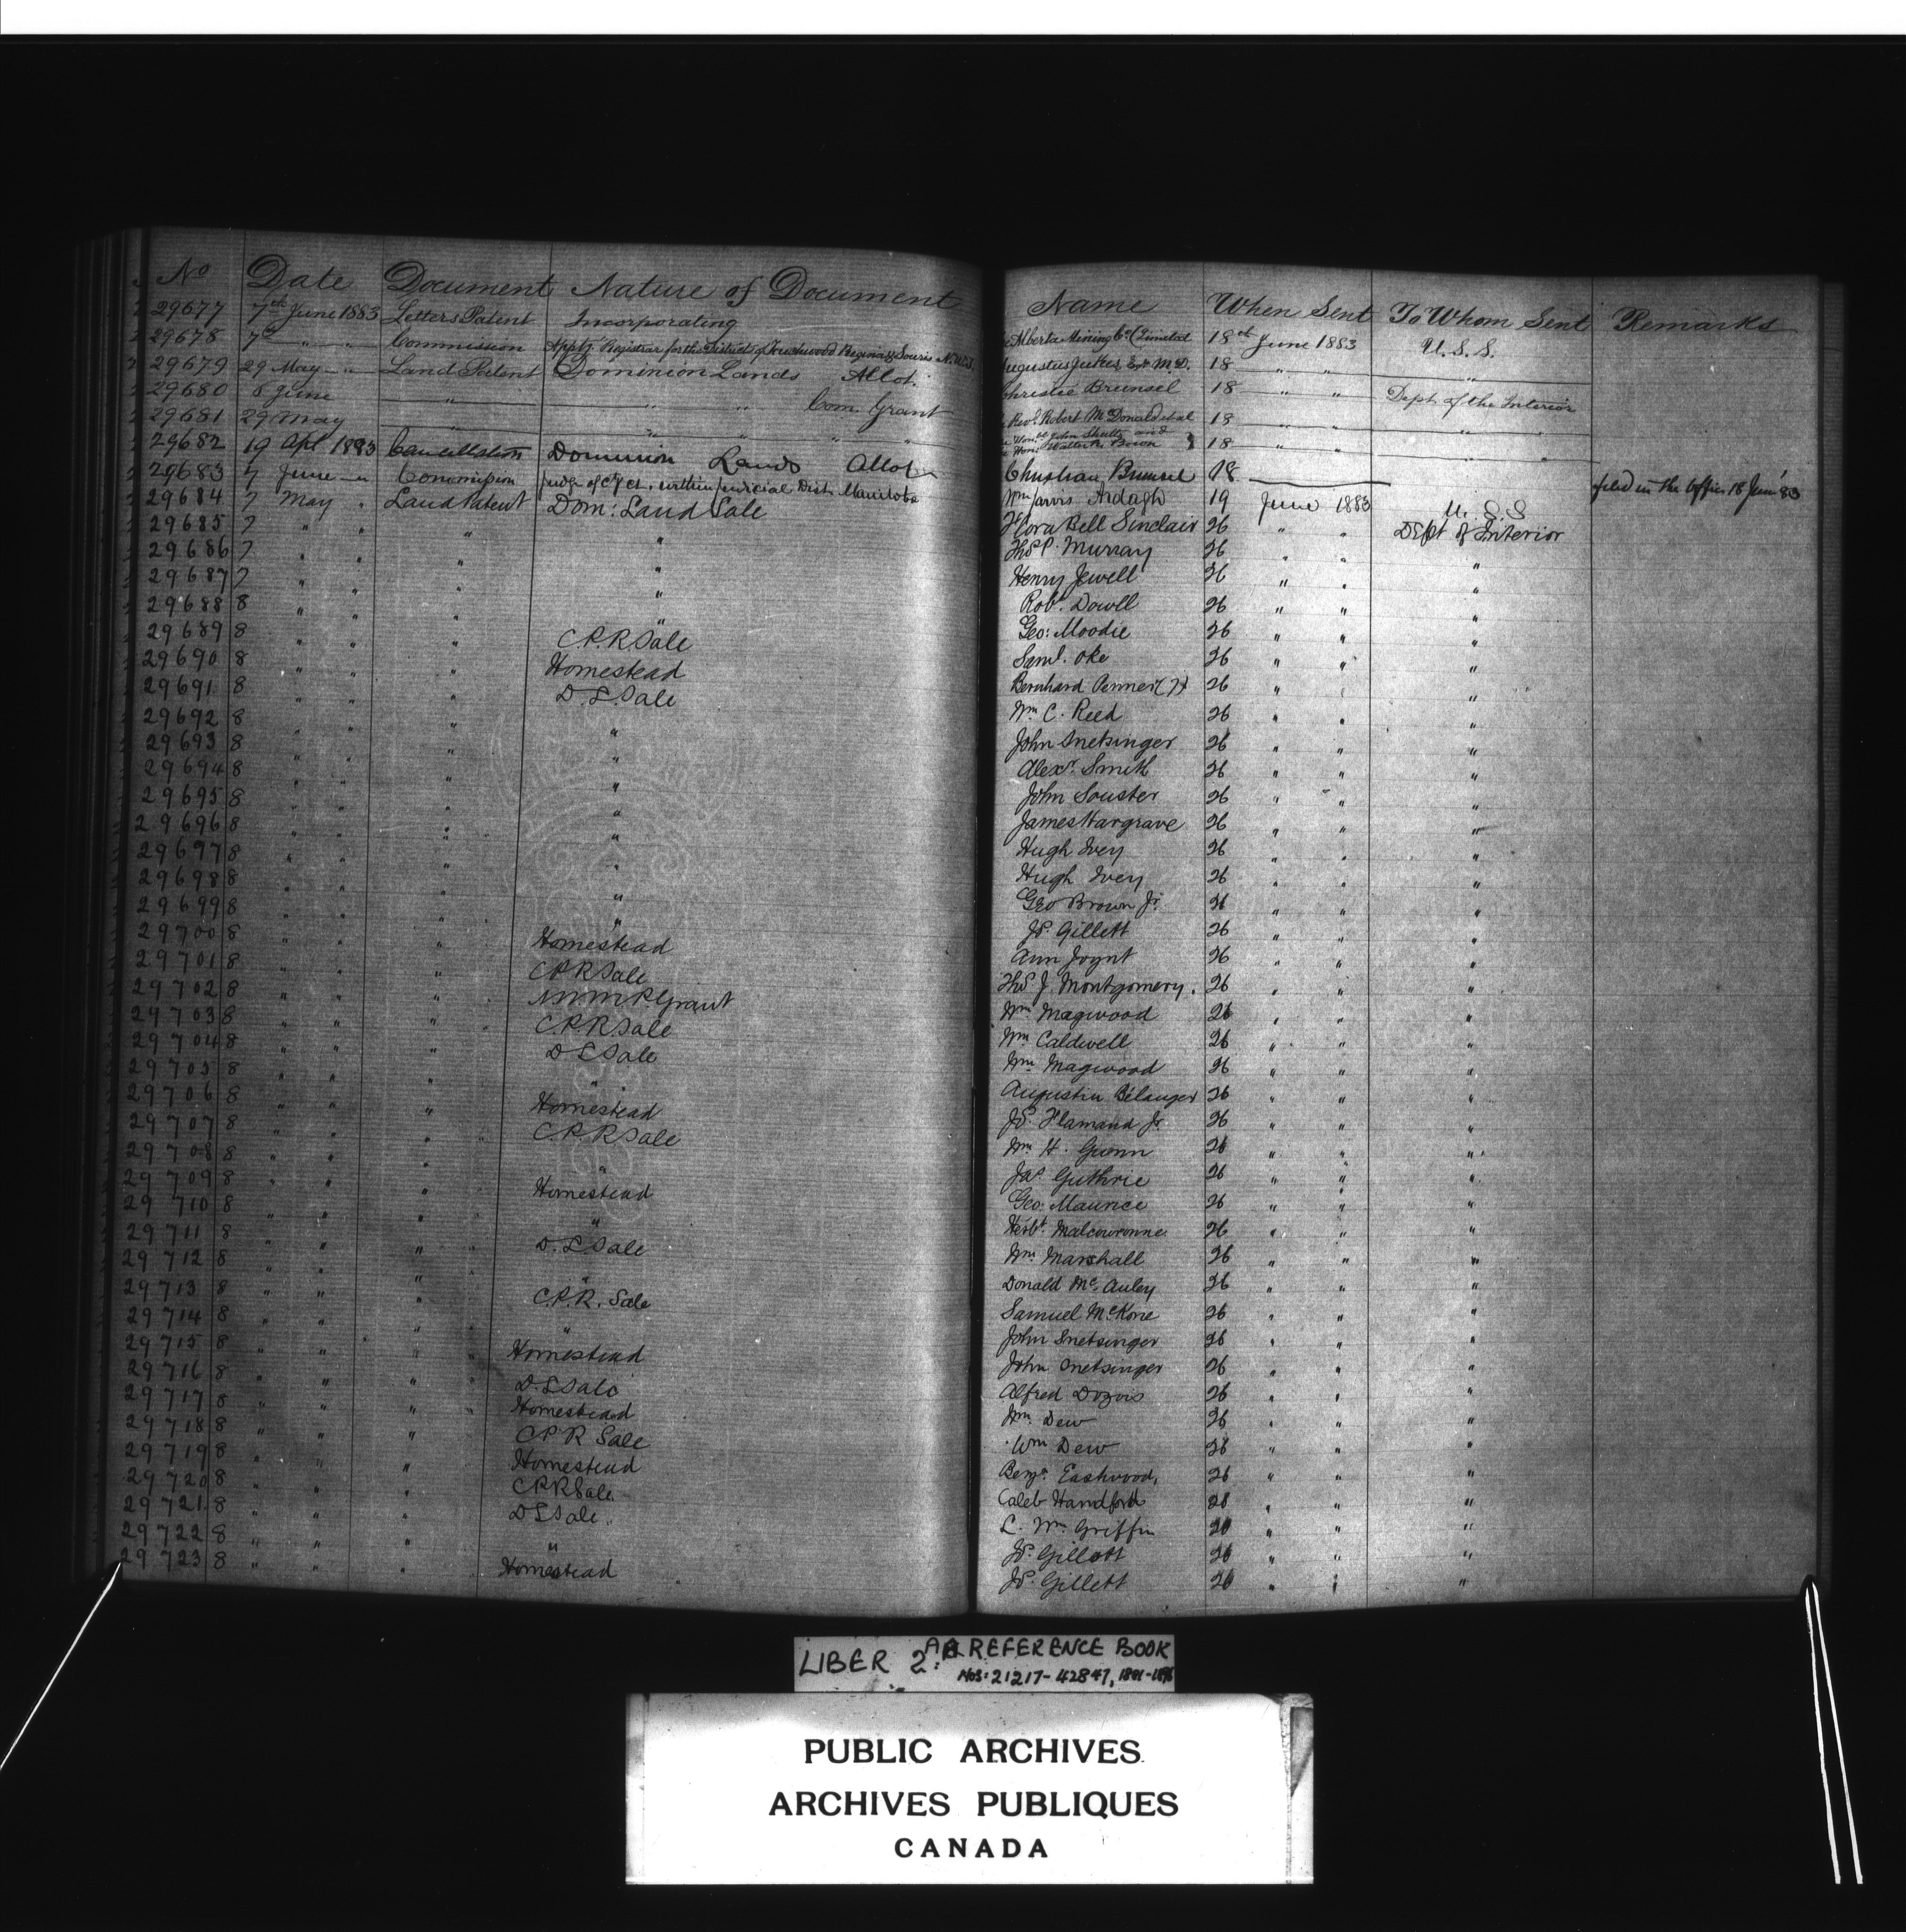 No Date Document Nature of Document Name When Sent To Whom Sent Remarks
29677 7th June 1883 Letters Patent Incorporating Alberta Mining Co (Limited 18th June 1883 U.S.S.
29678 7th " " Commission Apptg. Registrar for the Districts of Touchwood Regina & Souris N.W.T. Augustus Jukes, Esq. M.D. 18 " " "
29679 29 May " Land Patent Dominion Lands Allot. Christie Brunsel 18 " " Dept. of the Interior
29680 6 June " " " Com. Grant Revd. Robert McDonald et al 18 " " "
29681 29 May " " " " " Honble John Shultz and Hon. Walter R. Bown 18 " " "
29682 19 Apl 1883 Cancellation Dominion Lands Allot Christian Brunsel 18 filed in the Office 18 June '83
29683 7 June " Commission Judge of Cty Ct. within Judicial Dist. Manitoba Wm Jarvis Ardagh 19 June 1883 U.S.S
29684 7 May " Land Patent Dom: Land Sale Flora Bell Sinclair 26 " " Dept of Interior
29685 7 " " " " Thos P. Murray 26 " " "
29686 7 " " " " Henry Jewell 26 " " "
29687 7 " " " " Robt. Dowll 26 " " "
29688 8 " " " " Geo: Moodie 26 " " "
29689 8 " " " C.P.R Sale Saml. Oke 26 " " "
29690 8 " " " Homestead Bernhard Penner (7) 26 " " "
29691 8 " " " D.L. Sale Wm C. Reed 26 " " "
29692 8 " " " " John Snetsinger 26 " " "
29693 8 " " " " Alexr. Smith 26 " " "
29694 8 " " " " John Souster 26 " " "
29695 8 " " " " James Hargrave 26 " " "
29696 8 " " " " Hugh Ivey 26 " " "
29697 8 " " " " Hugh Ivey 26 " " "
29698 8 " " " " Geo Brown Jr. 26 " " "
29699 8 " " " " Js. Gillett 26 " " "
29700 8 " " " Homestead Ann Joynt 26 " " "
29701 8 " " " CPR Sale Thos J. Montgomery. 26 " " "
29702 8 " " " M P Grant Wm. Magwood 26 " " "
29703 8 " " " C.P.R Sale Wm Caldwell 26 " " "
29704 8 " " " D L Sale Wm. Magwood 26 " " "
29705 8 " " " " Augustin Bélanger 26 " " "
29706 8 " " " Homestead Js. Flamand Jr. 26 " " "
29707 8 " " " C.P.R Sale Wm H. Gunn 26 " " "
29708 8 " " " " Jas Guthrie 26 " " "
29709 8 " " " Homestead Geo: Maurice 26 " " "
29710 8 " " " " Herbt. Malcouronne 26 " " "
29711 8 " " " D. L Sale Wm. Marshall 26 " " "
29712 8 " " " " Donald McAuley 26 " " "
29713 8 " " " C.P.R. Sale Samuel McKone 26 " " "
29714 8 " " " " John Snetsinger 26 " " "
29715 8 " " " Homestead John Snetsinger 26 " " "
29716 8 " " " D.L Sale Alfred Dozois 26 " " "
29717 8 " " " Homestead Wm. Dew 26 " " "
29718 8 " " " C P R Sale Wm Dew 26 " " "
29719 8 " " " Homestead Benja. Eastwood, 26 " " "
29720 8 " " " C P R Sale. Caleb Handford 26 " " "
29721 8 " " " D L Sale. L. Wm Griffin 26 " " "
29722 8 " " " " Js. Gillett 26 " " "
29723 8 " " " Homestead Js. Gillett 26 " " "
LIBER 2: REFERENCE BOOK
Nos: 21217-42847, 1881-1896
PUBLIC ARCHIVES
ARCHIVES PUBLIQUES
CANADA